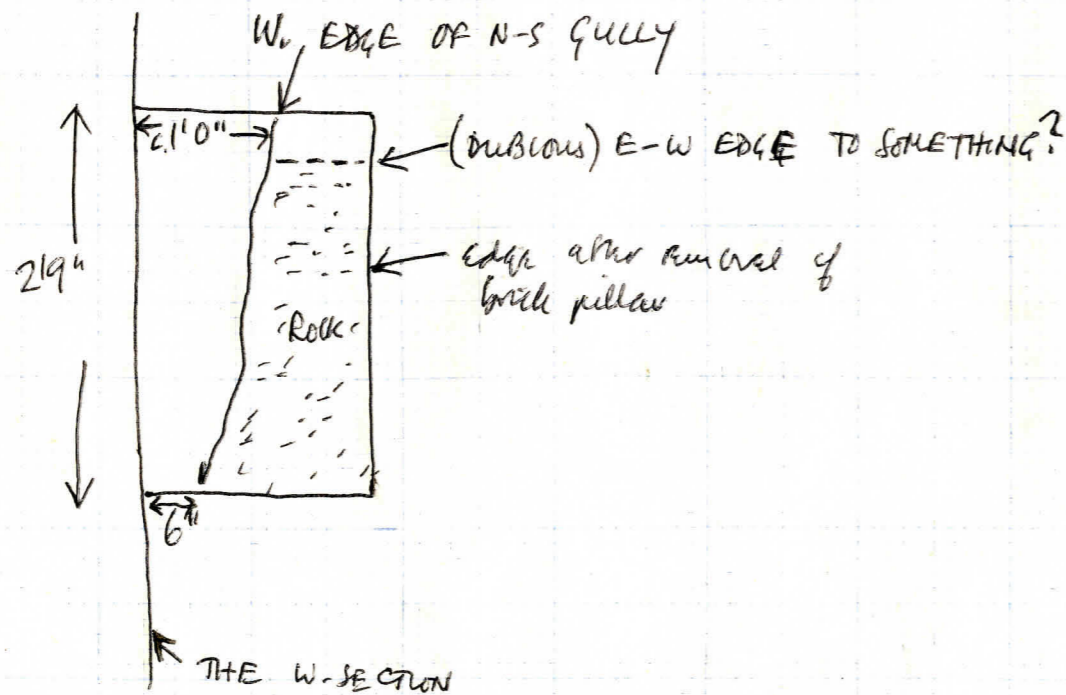 W. EDGE OF N-S GULLY
c.1'0"
(DUBIOUS) E-W EDGE TO SOMETHING?
2'9"
edge after removal of
brick pillar
Rock
6"
THE W-SECTION